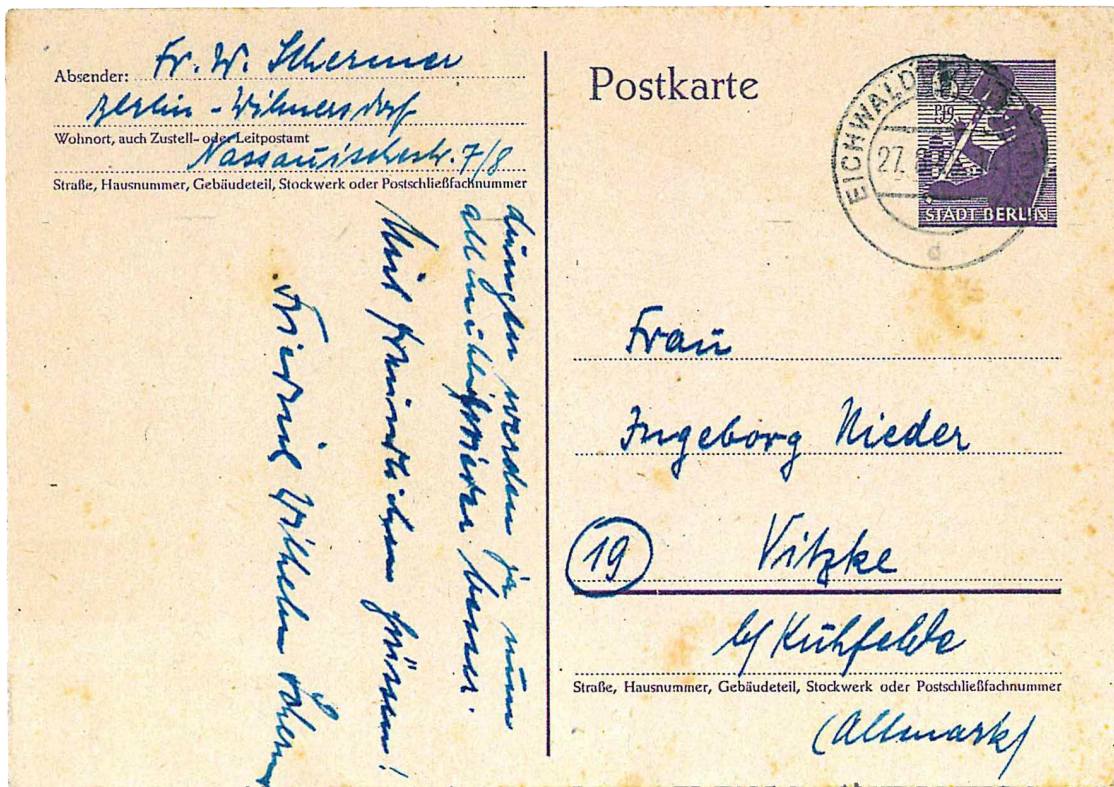 Absender: Fr. W. Schermer
Berlin-Wilmersdorf
Wohnort, auch Zustell- oder Leitpostamt
Nassauischestr. 7/8
Straße, Hausnummer, Gebäudeteil, Stockwerk oder Postschließfachnummer
werden ja nun
allmählich wieder besser.
Mit freundlichen Grüssen!
Friedrich Wilhelm
Postkarte
EICHWALDE
27. 8.
STADT BERLIN
d
Frau
Ingeborg Nieder
19
Vitzke
b/ Kuhfelde
Straße, Hausnummer, Gebäudeteil, Stockwerk oder Postschließfachnummer
(Altmark)